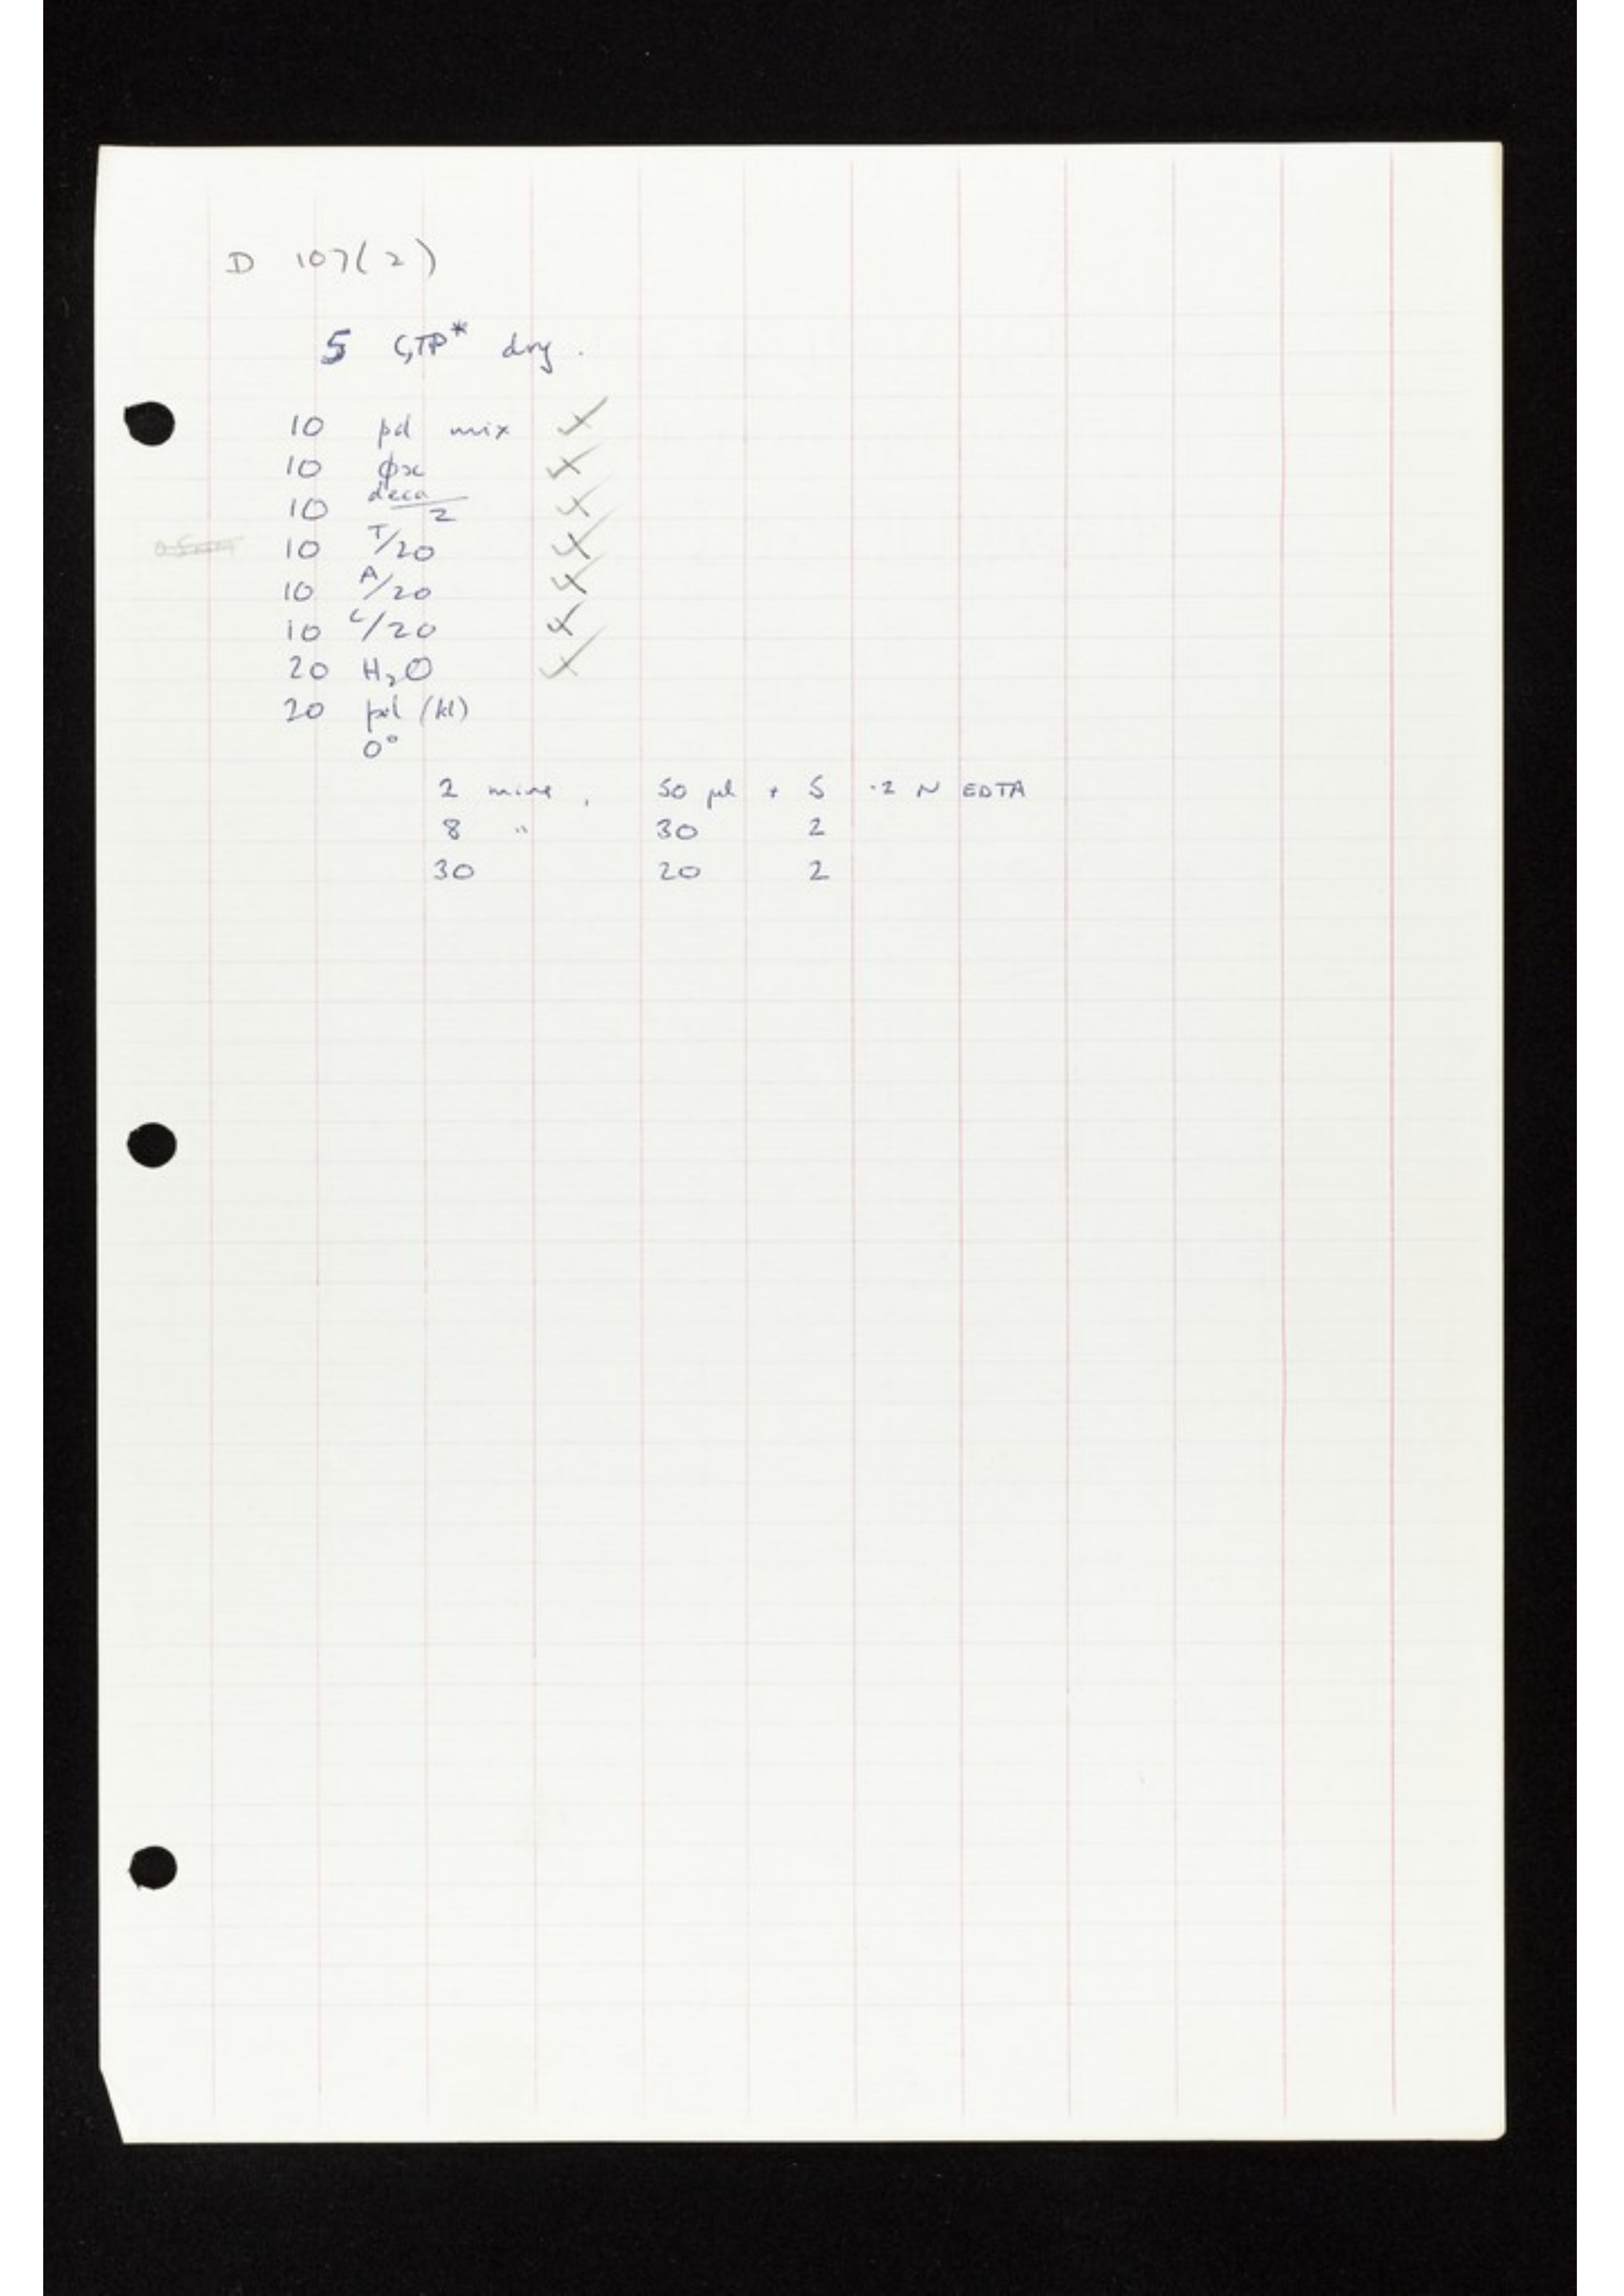 D 107(2)
5 GTP* dry.
10 pol mix
10 φx
10 deca/2
10 T/20
10 A/20
10 C/20
20 H₂O
20 pol (kl)
0°
2 mins, 50 µl + 5 ·2 N EDTA
8 " 30 2
30 20 2